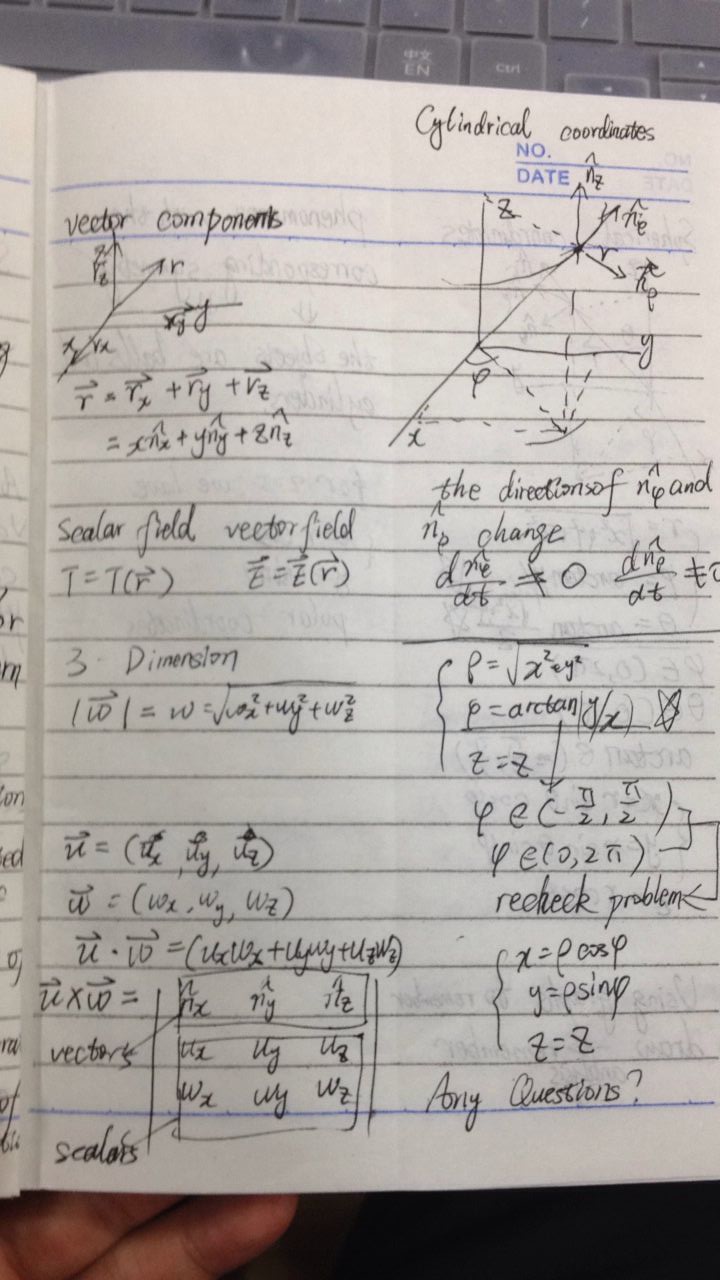 中文
EN
Ctrl
Cylindrical coordinates
NO.
DATE
n̂z
z
n̂φ
r
n̂ρ
y
φ
x
vector components
r⃗z
r
y
x rx
r⃗ = r⃗x + r⃗y + r⃗z
= xn̂x + yn̂y + zn̂z
Scalar field vector field
T = T(r⃗) E⃗ = E⃗(r⃗)
3 - Dimension
|w⃗| = w = √wx²+wy²+wz²
u⃗ = (ux, uy, uz)
w⃗ = (wx, wy, wz)
u⃗ · w⃗ = (uxwx+uywy+uzwz)
u⃗ × w⃗ = | n̂x n̂y n̂z |
vectors | ux uy uz |
| wx wy wz |
scalars
the directions of n̂φ and
n̂ρ change
dn̂ρ/dt ≠ 0 dn̂φ/dt ≠ 0
ρ = √x²+y²
φ = arctan(y/x)
z = z
φ ∈ (-π/2, π/2)
φ ∈ (0, 2π)
recheck problem
x = ρ cosφ
y = ρ sinφ
z = z
Any Questions?